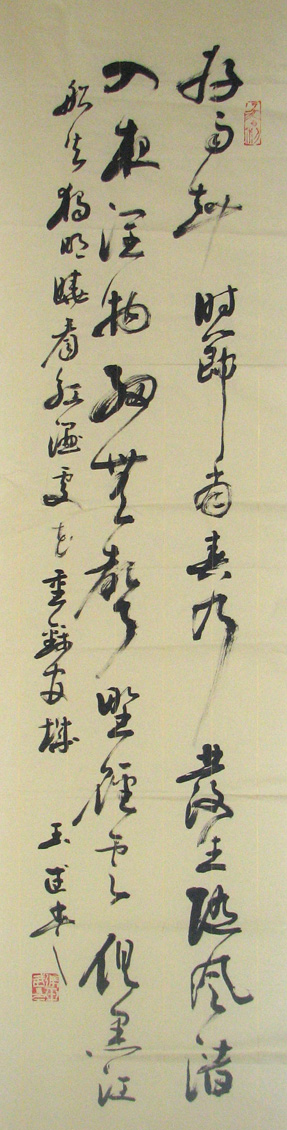 好雨知時節當春乃發生隨風潛
入夜潤物細無聲野徑雲俱黑江
船火獨明曉看紅濕處花重錦官城